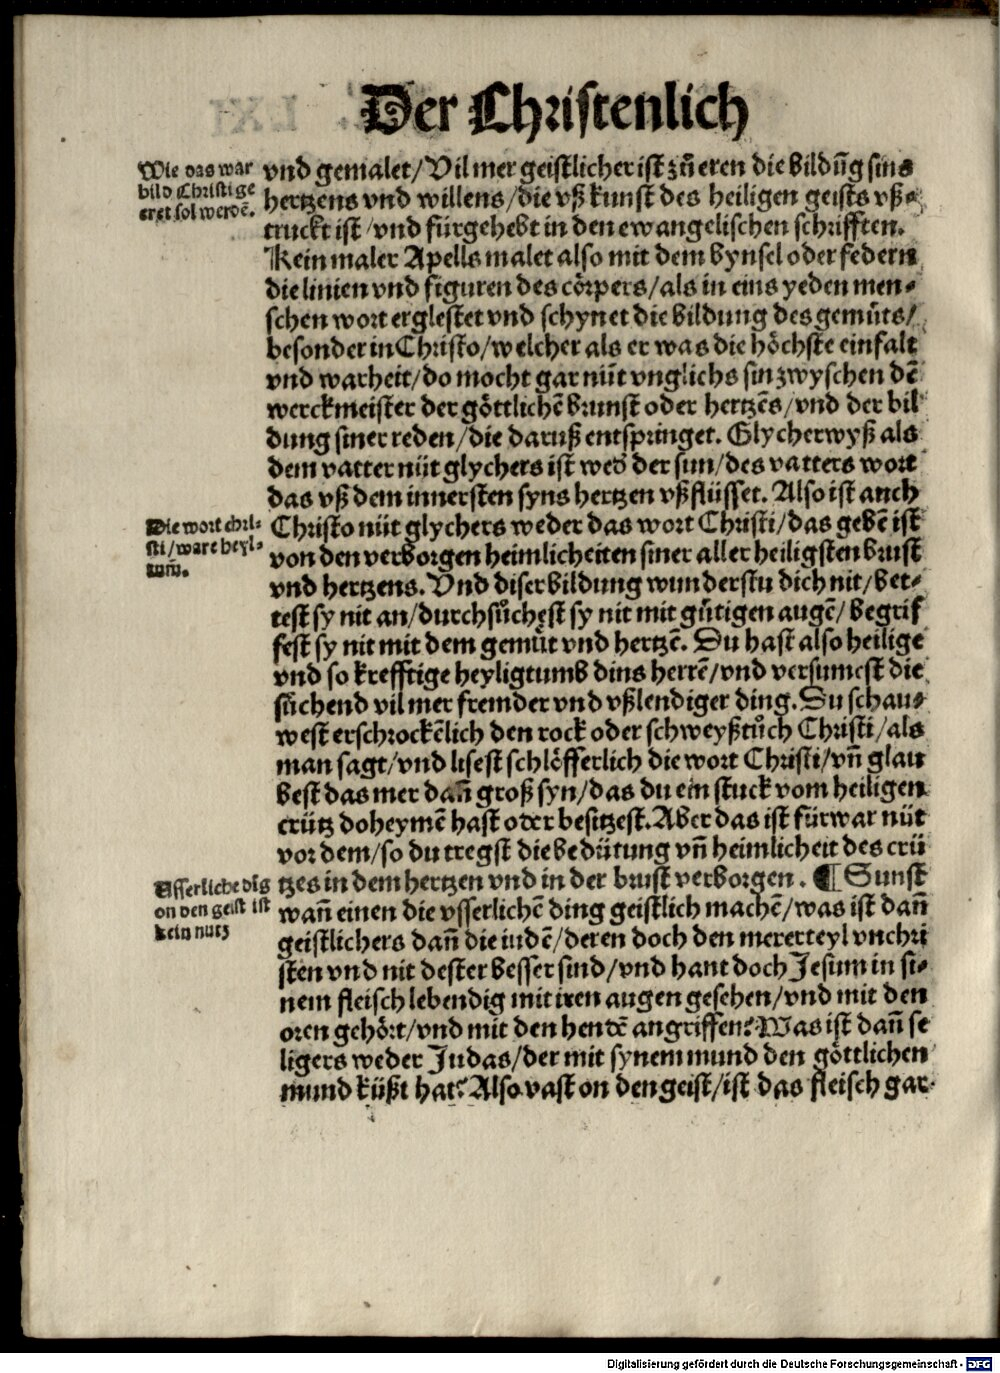 Der Christenlich
Wie das war
bild Christi ge
eret sol werdē.
vnd gemalet/Vil mer geistlicher ist zů eren die bildūg sins
hertzens vnd willens/die vß kunst des heiligen geists vß⸗
truckt ist/vnd fürgehebt in den ewangelischen schrifften.
Kein maler Apells malet also mit dem bynsel oder federn
die linien vnd figuren des cörpers/als in eins yeden men⸗
schen wort erglestet vnd schynet die bildung des gemůts/
besonder in Christo/welcher als er was die höchste einfalt
vnd warheit/do mocht gar nüt vnglichs sin zwyschen dē
werckmeister der göttlichē brunst oder hertzēs/vnd der bil
dung siner reden/die daruß entspringet. Glycherwyß als
dem vatter nüt glychers ist wed̄ der sun/des vatters wort
das vß dem innersten syns hertzen vßflüsset. Also ist auch
Die wort chri⸗
sti/ware heyl⸗
tum̄.
Christo nüt glychers weder das wort Christi/das gebē ist
von den verborgen heimlicheiten siner aller heiligsten brust
vnd hertzens. Vnd diser bildung wunderstu dich nit/bet⸗
test sy nit an/durchsůchest sy nit mit gůtigen augē/begrif
fest sy nit mit dem gemůt vnd hertzē. Du hast also heilige
vnd so krefftige heyligtumb dins herrē/vnd versumest die
sůchend vil mer fremder vnd vßlendiger ding. Du schau⸗
west erschrockēlich den rock oder schweyßtůch Christi/als
man sagt/vnd lisest schlöfferlich die wort Christi/vn̄ glau
best das mer dan̄ groß syn/das du ein stuck vom heiligen
crütz doheymē hast oder besitzest. Aber das ist fürwar nüt
vor dem/so du tregst die bedütung vn̄ heimlicheit des crü
Vsserliche dīg
on den geist ist
kein nutz
tzes in dem hertzen vnd in der brust verborgen. ¶ Sunst
wan̄ einen die vsserlichē ding geistlich machē/was ist dan̄
geistlichers dan̄ die iudē/deren doch den mererteyl vnchri
sten vnd nit dester besser sind/vnd hant doch Jesum in si⸗
nem fleisch lebendig mit iren augen gesehen/vnd mit den
oren gehört/vnd mit den hendē angriffen? Was ist dan̄ se
ligers weder Judas/der mit synem mund den göttlichen
mund küßt hat? Also vast on den geist/ist das fleisch gar
Digitalisierung gefördert durch die Deutsche Forschungsgemeinschaft - DFG